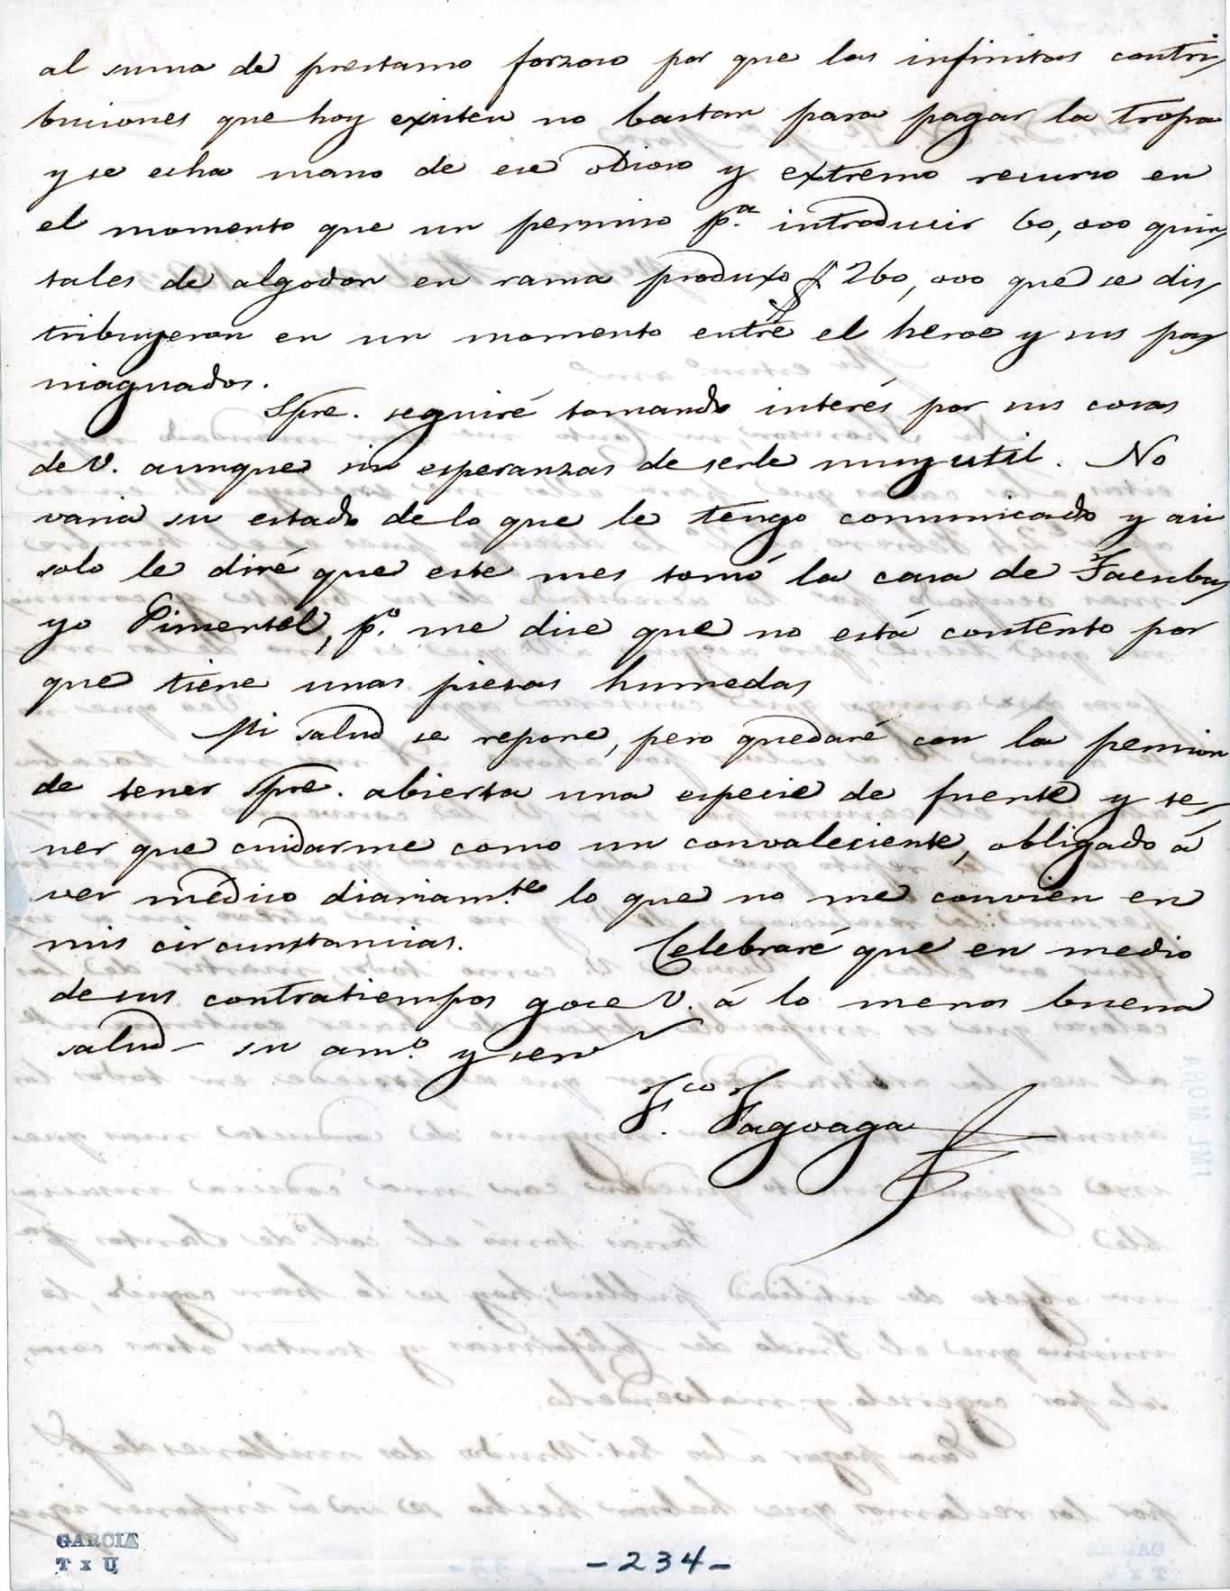 al suma de prestamo forzoso por que las infinitas contri-
buciones que hoy existen no bastan para pagar la tropa
y se echa mano de ese odioso y extremo recurso en
el momento que un permiso p.ª introducir 60,000 quin-
tales de algodon en rama produxo $ 260,000 que se dis-
tribuyeron en un momento entre el heroe y sus pa-
niaguados.
Spre. seguiré tomando interés por sus cosas
de V. aunque sin esperanzas de serle muy util. No
varia su estado de lo que le tengo comunicado y asi
solo le diré que este mes tomó la casa de Tacuba
yo Pimentel, p.º me dice que no está contento por
que tiene unas piesas humedas
Mi salud se repone, pero quedaré con la pension
de tener Spre. abierta una especie de fuente y te-
ner que cuidarme como un convaleciente, obligado á
ver médico diariam.te lo que no me convien en
mis circunstancias. Celebraré que en medio
de sus contratiempos goce V. á lo menos buena
salud su am.º y serv
F.co Fagoaga
GARCIA
T x U
-234-